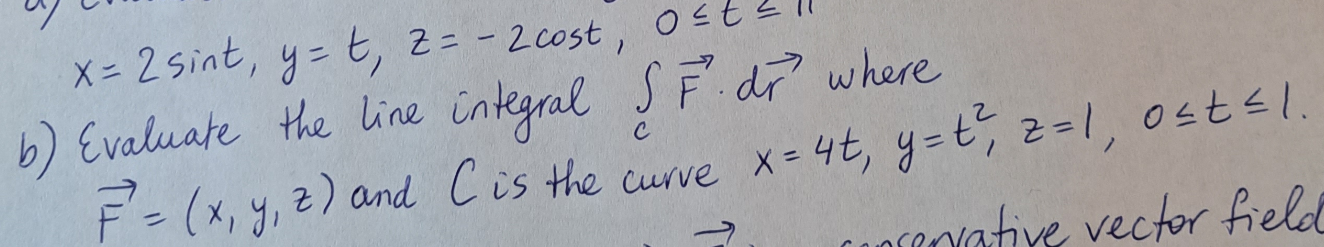 a)
x = 2 sint, y = t, z = - 2 cost, 0 ≤ t ≤ π
b) Evaluate the line integral ∫_C F⃗ · dr⃗ where
F⃗ = (x, y, z) and C is the curve x = 4t, y = t², z = 1, 0 ≤ t ≤ 1.
conservative vector field